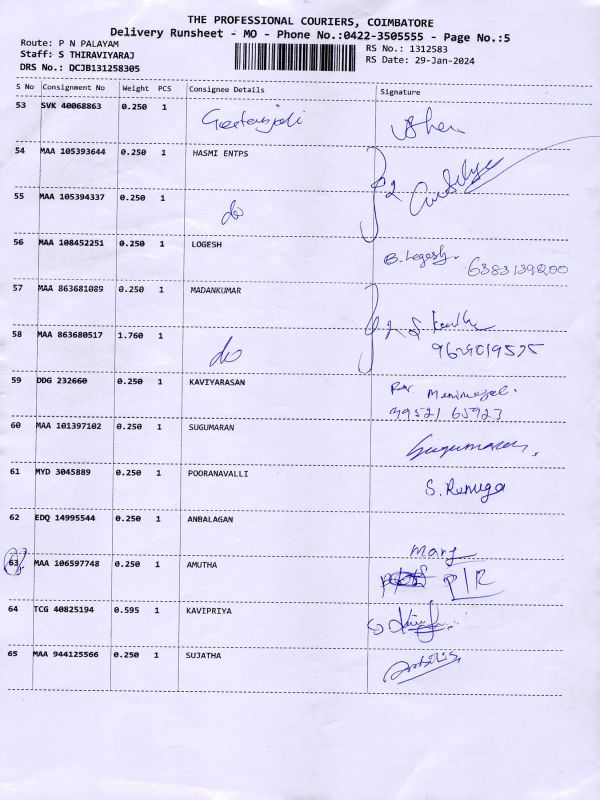 THE PROFESSIONAL COURIERS, COIMBATORE
Delivery Runsheet - MO - Phone No.:0422-3505555 - Page No.:5
Route: P N PALAYAM
Staff: S THIRAVIYARAJ
DRS No.: DCJB131258305
RS No.: 1312583
RS Date: 29-Jan-2024
S No Consignment No Weight PCS Consignee Details Signature
53 SVK 40068863 0.250 1 Geetanjali
54 MAA 105393644 0.250 1 HASMI ENTPS
55 MAA 105394337 0.250 1 do
} 2
56 MAA 108452251 0.250 1 LOGESH B. Logesh.
6383139200
57 MAA 863681089 0.250 1 MADANKUMAR
58 MAA 863680517 1.760 1 do
} 2
9629019575
59 DDG 232660 0.250 1 KAVIYARASAN
60 MAA 101397102 0.250 1 SUGUMARAN Sugumaran.
61 MYD 3045889 0.250 1 POORANAVALLI S. Renuga
62 EDQ 14995544 0.250 1 ANBALAGAN
63 MAA 106597748 0.250 1 AMUTHA
P/R
64 TCG 40825194 0.595 1 KAVIPRIYA
65 MAA 944125566 0.250 1 SUJATHA